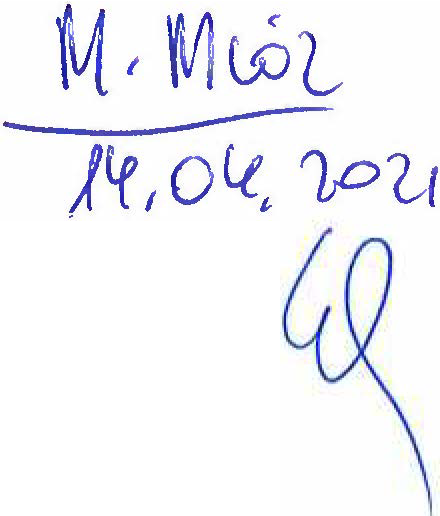 M. Mióz
14.04.2021